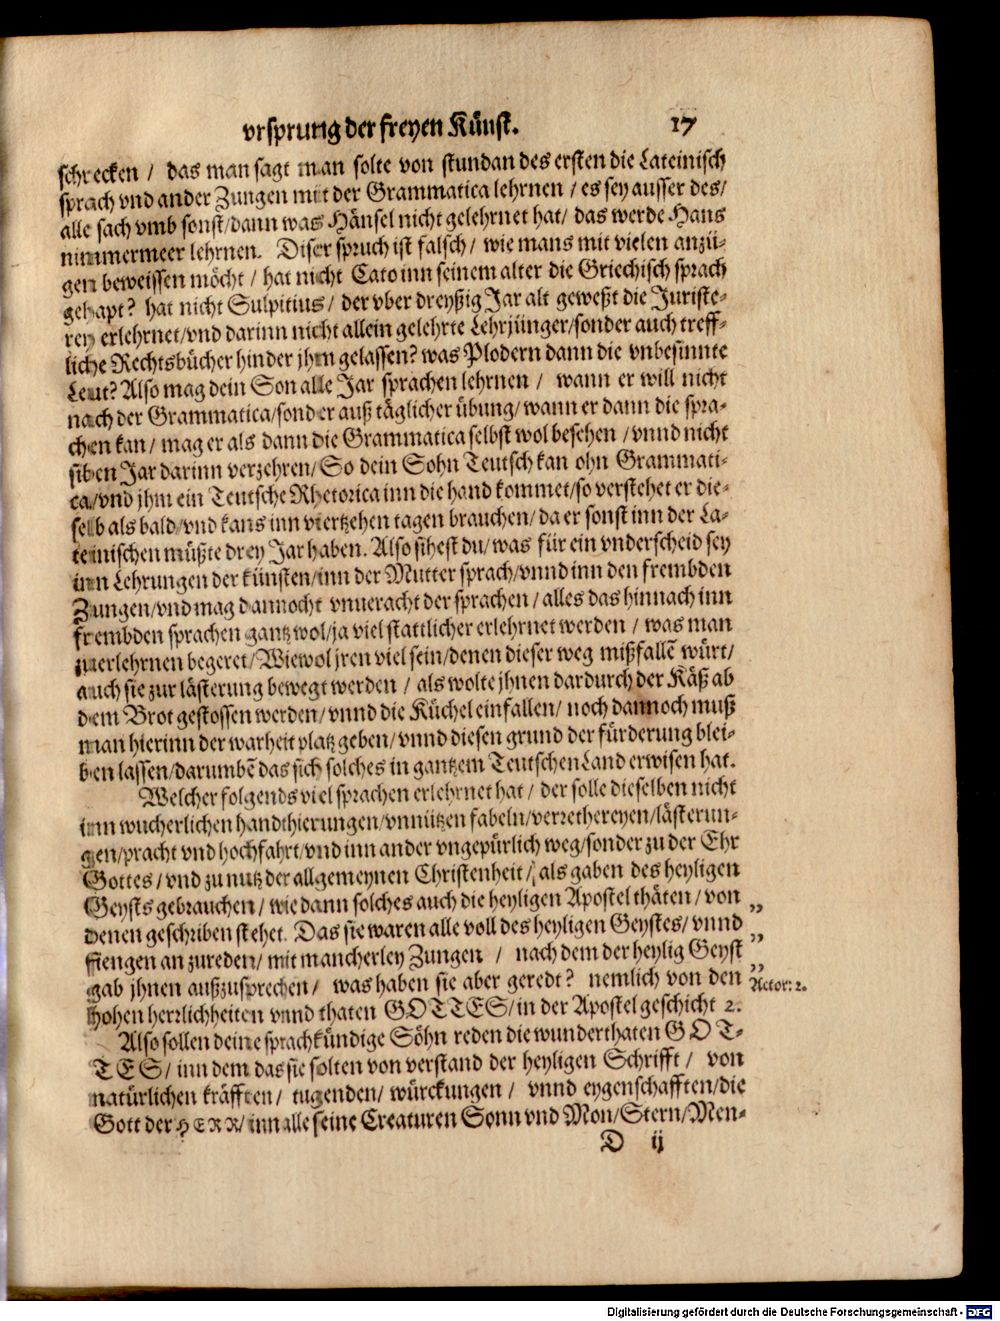 vrsprung der freyen Künst. 17
schrecken / das man sagt man solte von stundan des ersten die Lateinisch
sprach vnd ander Zungen mit der Grammatica lehrnen / es sey ausser des/
alle sach vmb sonst/dann was Hänsel nicht gelehrnet hat/ das werde Hans
nimmermeer lehrnen. Diser spruch ist falsch / wie mans mit vielen anzü-
gen beweissen möcht / hat nicht Cato inn seinem alter die Griechisch sprach
gehapt? hat nicht Sulpitius / der vber dreyßig Jar alt geweßt die Juriste-
rey erlehrnet/vnd darinn nicht allein gelehrte Lehrjünger/sonder auch treff-
liche Rechtsbücher hinder jhm gelassen? was Plodern dann die vnbesinnte
Leut? Also mag dein Son alle Jar sprachen lehrnen / wann er will nicht
nach der Grammatica/sonder auß täglicher übung/ wann er dann die spra-
chen kan / mag er als dann die Grammatica selbst wol besehen / vnnd nicht
siben Jar darinn verzehren/ So dein Sohn Teutsch kan ohn Grammati-
ca/vnd jhm ein Teutsche Rhetorica inn die hand kommet/so verstehet er die-
selb als bald/vnd kans inn viertzehen tagen brauchen/ da er sonst inn der La-
teinischen müßte drey Jar haben. Also sihest du/ was für ein vnderscheid sey
inn Lehrungen der künsten/inn der Mutter sprach/vnnd inn den frembden
Zungen/vnd mag dannocht vnueracht der sprachen / alles das hinnach inn
frembden sprachen gantz wol/ja viel stattlicher erlehrnet werden / was man
zuerlehrnen begeret/Wiewol jren viel sein/denen dieser weg mißfallē würt/
auch sie zur lästerung bewegt werden / als wolte jhnen dardurch der Käß ab
dem Brot gestossen werden/vnnd die Küchel einfallen/ noch dannoch muß
man hierinn der warheit platz geben/ vnnd diesen grund der fürderung blei-
ben lassen/darumbē das sich solches in gantzem Teutschen Land erwisen hat.
Welcher folgends viel sprachen erlehrnet hat / der solle dieselben nicht
inn wucherlichen handthierungen/vnnützen fabeln/verrethereyen/lästerun-
gen/pracht vnd hochfahrt/vnd inn ander vngepürlich weg/sonder zu der Ehr
Gottes / vnd zu nutz der allgemeynen Christenheit / als gaben des heyligen
Geysts gebrauchen / wie dann solches auch die heyligen Apostel thäten / von
denen geschriben stehet. Das sie waren alle voll des heyligen Geystes/ vnnd „
fiengen an zureden/ mit mancherley Zungen / nach dem der heylig Geyst „
gab jhnen außzusprechen / was haben sie aber geredt? nemlich von den „ Actor: 2.
hohen herrlichheiten vnnd thaten GOTTES/in der Apostel geschicht 2.
Also sollen deine sprachkündige Söhn reden die wunderthaten GOT-
TES / inn dem das sie solten von verstand der heyligen Schrifft / von
natürlichen kräfften / tugenden / würckungen / vnnd eygenschafften/die
Gott der HERR/ inn alle seine Creaturen Sonn vnd Mon/Stern/Men-
D ij
Digitalisierung gefördert durch die Deutsche Forschungsgemeinschaft - DFG